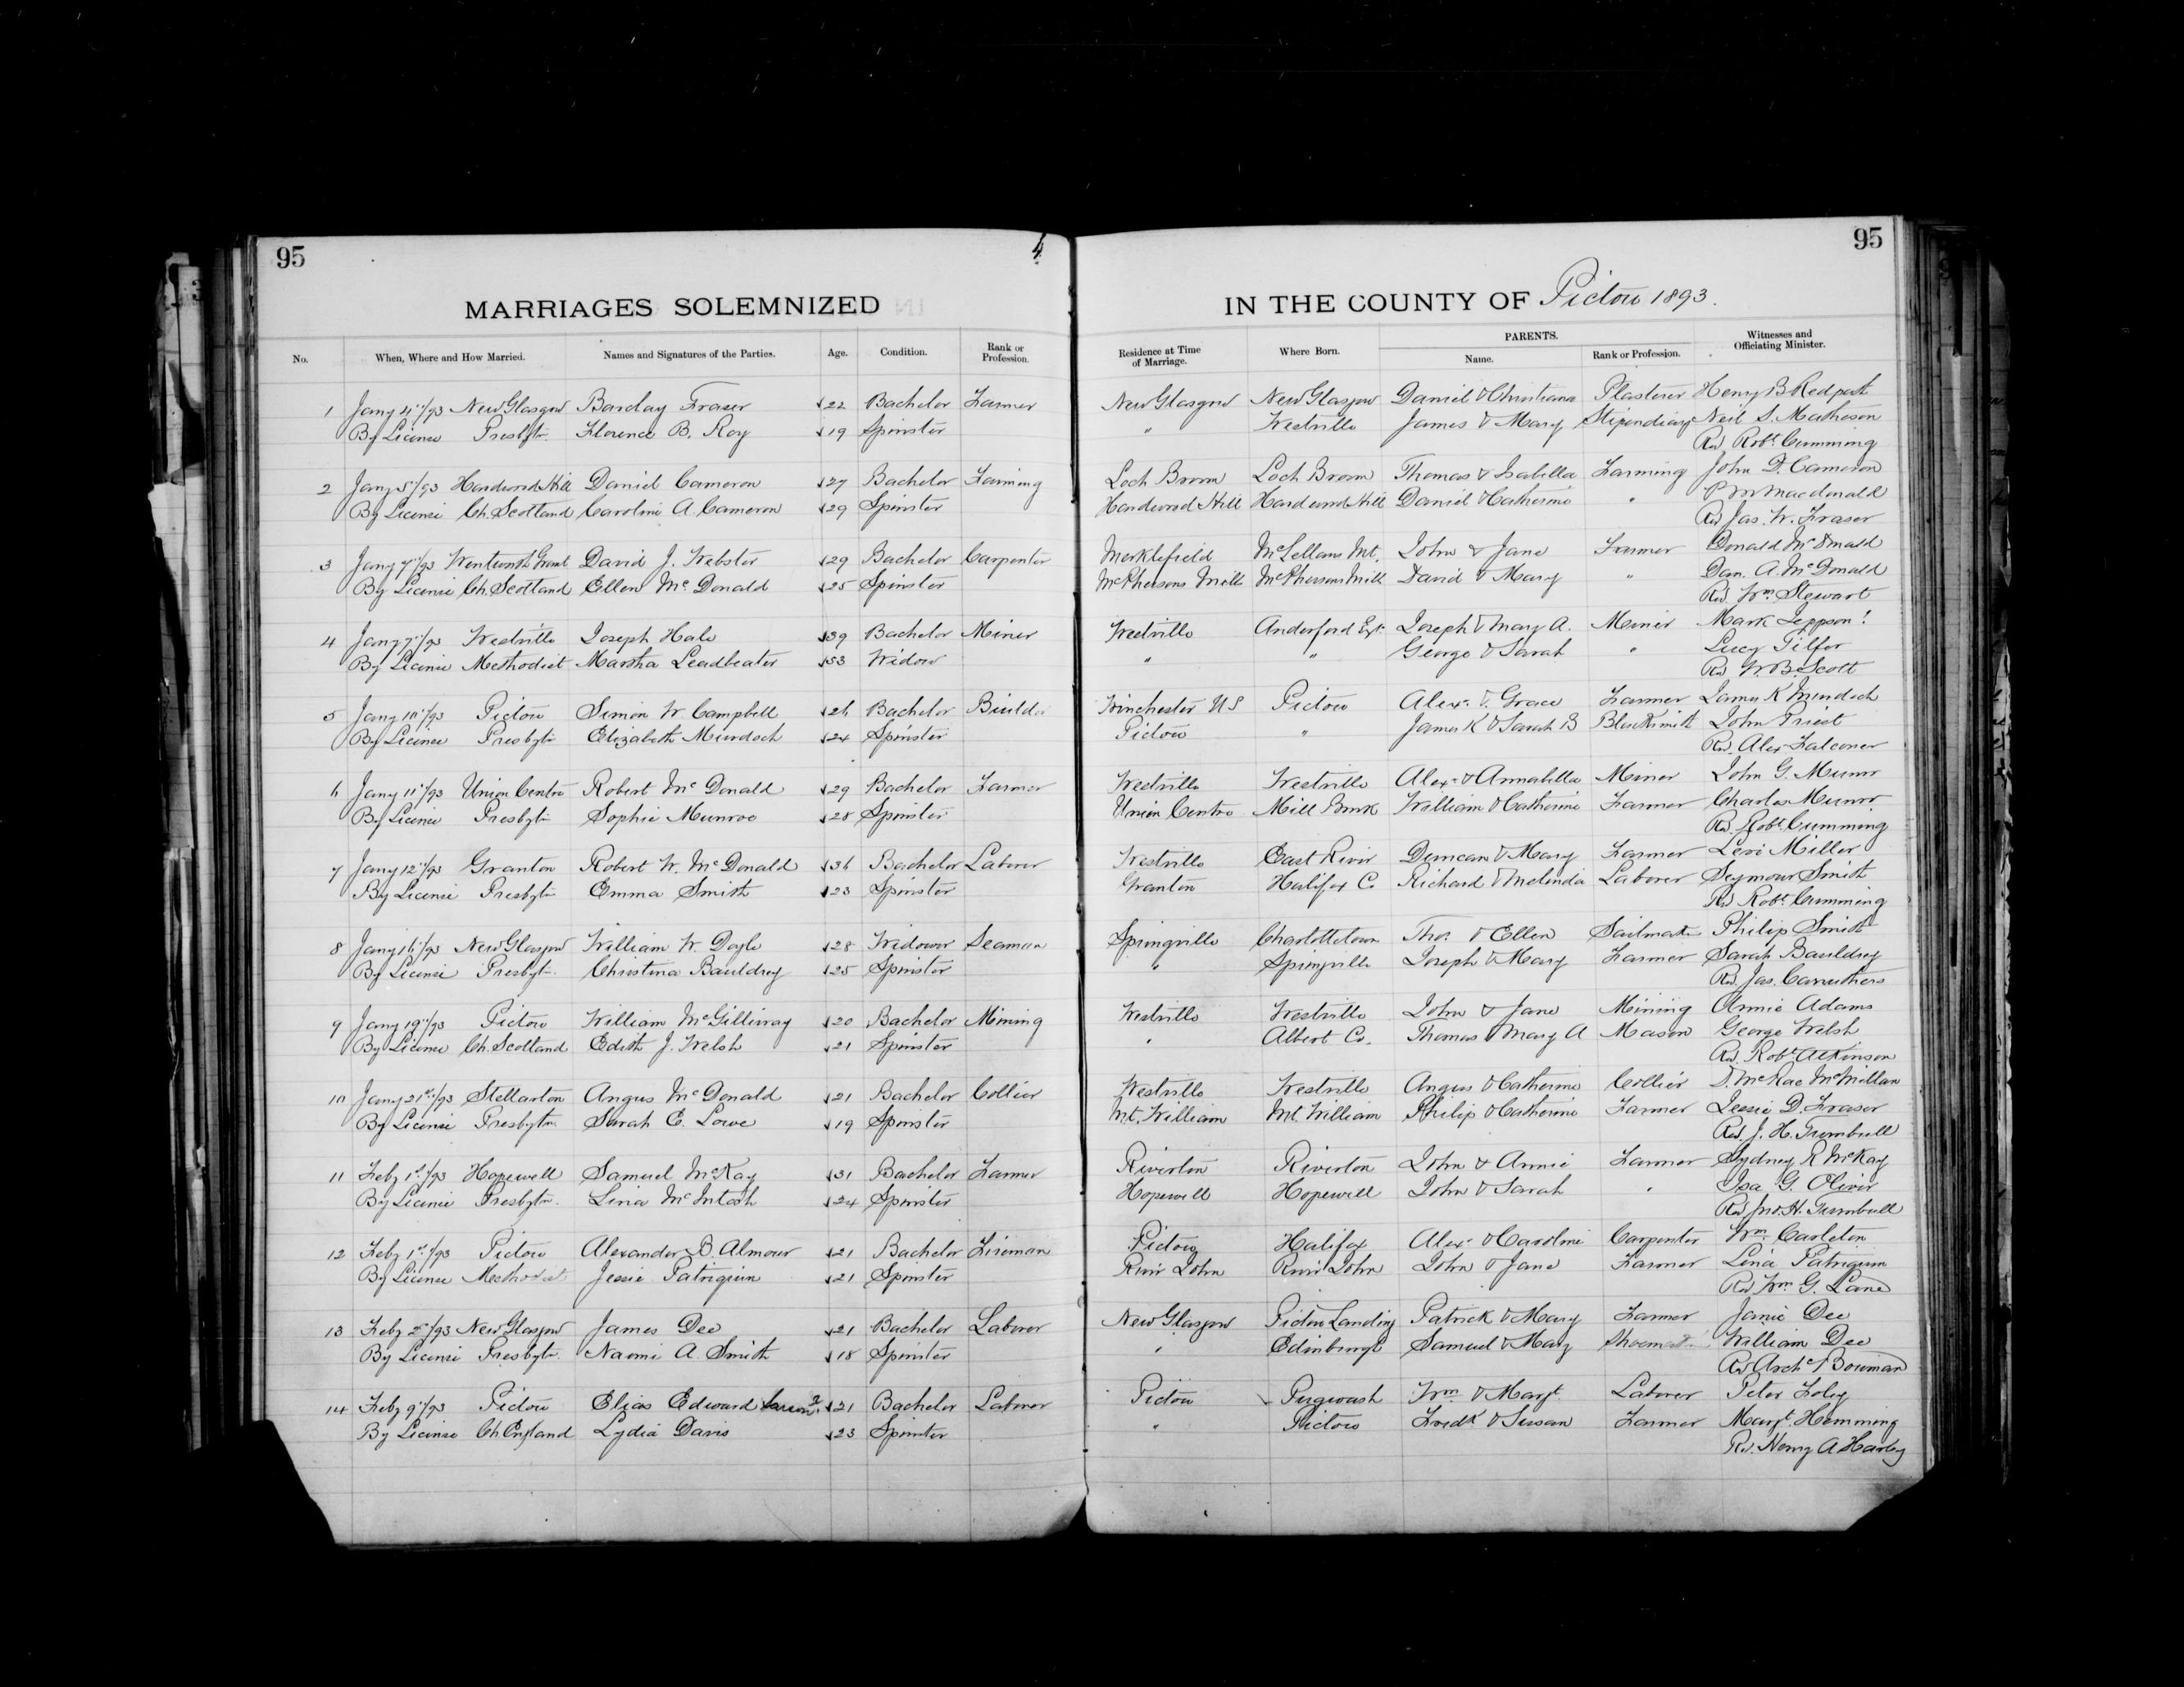 95
4
95
MARRIAGES SOLEMNIZED IN THE COUNTY OF Pictou 1893.
No. When, Where and How Married. Names and Signatures of the Parties. Age. Condition. Rank or Profession. Residence at Time of Marriage. Where Born. PARENTS. Name. Rank or Profession. Witnesses and Officiating Minister.
1 Jany 4"/93 New Glasgow Barclay Fraser 22 Bachelor Farmer New Glasgow New Glasgow Daniel & Christiana Plasterer Henry B Redpath
By License Presbytn Florence B. Roy 19 Spinster " Westville James & Mary Stipendiary Neil S. Matheson
Rev. Robt. Cumming
2 Jany 5"/93 Hardwood Hill Daniel Cameron 27 Bachelor Farming Loch Broom Loch Broom Thomas & Isabella Farming John D. Cameron
By License Ch. Scotland Caroline A. Cameron 29 Spinster Hardwood Hill Hardwood Hill Daniel & Catherine " P M Macdonald
Rev Jas. W. Fraser
3 Jany 7"/93 Wentworth Grant David J. Webster 29 Bachelor Carpenter Merklefield McLellans Mt. John & Jane Farmer Donald McDonald
By License Ch. Scotland Ellen McDonald 25 Spinster McPhersons Mill McPhersons Mill David & Mary " Dan. A. McDonald
Rev. Wm. Stewart
4 Jany 7"/93 Westville Joseph Hale 39 Bachelor Miner Westville Joseph & Mary A. Miner Mark
By License Methodist Martha Leadbeater 53 Widow " " George & Sarah " Lucy Tilfor
Rev W. B. Scott
5 Jany 10"/93 Pictou Simon W Campbell 26 Bachelor Builder Winchester US Pictou Alexr. & Grace Farmer James K Murdoch
By License Presbytn Elizabeth Murdoch 24 Spinster Pictou " James K & Sarah B Blacksmith John Priest
Rev. Alex Falconer
6 Jany 11"/93 Union Centre Robert McDonald 29 Bachelor Farmer Westville Westville Alexr & Annabella Miner John G. Munro
By License Presbytn Sophie Munroe 28 Spinster Union Centre Mill Brook William & Catherine Farmer Charles Munro
Rev. Robt. Cumming
7 Jany 12"/93 Granton Robert W. McDonald 36 Bachelor Laborer Westville East River Duncan & Mary Farmer Levi Miller
By License Presbytn Emma Smith 23 Spinster Granton Halifax C. Richard & Melinda Laborer Seymour Smith
Rev Robt. Cumming
8 Jany 16"/93 New Glasgow William W. Doyle 28 Widower Seaman Springville Charlottetown Thos. & Ellen Sailmaker Philip Smith
By License Presbytn. Christina Bauldrey 25 Spinster " Springville Joseph & Mary Farmer Sarah Bauldrey
Rev. Jas. Carruthers
9 Jany 19"/93 Pictou William McGillivray 20 Bachelor Mining Westville Westville John & Jane Mining Annie Adams
By License Ch. Scotland Edith J. Welsh 21 Spinster " Albert Co. Thomas & Mary A Mason George Welsh
Rev. Robt. Atkinson
10 Jany 21st/93 Stellarton Angus McDonald 21 Bachelor Collier Westville Westville Angus & Catherine Collier D. McRae McMillan
By License Presbytn Sarah E. Lowe 19 Spinster Mt. William Mt. William Philip & Catherine Farmer Jessie D. Fraser
Rev. J. H. Turnbull
11 Feby 1st/93 Hopewell Samuel McKay 31 Bachelor Farmer Riverton Riverton John & Annie Farmer Sydney R McKay
By License Presbytn. Lina McIntosh 24 Spinster Hopewell Hopewell John & Sarah " Isa G. Oliver
Rev Jno. H. Turnbull
12 Feby 1st/93 Pictou Alexander B. Almour 21 Bachelor Fireman Pictou Halifax Alexr & Caroline Carpenter Wm. Carleton
By License Methodist Jessie Patriquin 21 Spinster River John River John John & Jane Farmer Lina Patriquin
Rev Wm G. Lane
13 Feby 2"/93 New Glasgow James Dee 21 Bachelor Laborer New Glasgow Pictou Landing Patrick & Mary Farmer Janie Dee
By License Presbytn. Naomi A Smith 18 Spinster " Edinburgh Samuel & Mary William Dee
Rev Archd Bowman
14 Feby 9"/93 Pictou Elias Edward 21 Bachelor Laborer Pictou Pugwash Wm & Margt. Laborer Peter Foley
By License Ch England Lydia Davis 23 Spinster " Pictou Fredk & Susan Farmer Margt. Hemming
Rev. Henry A Harley